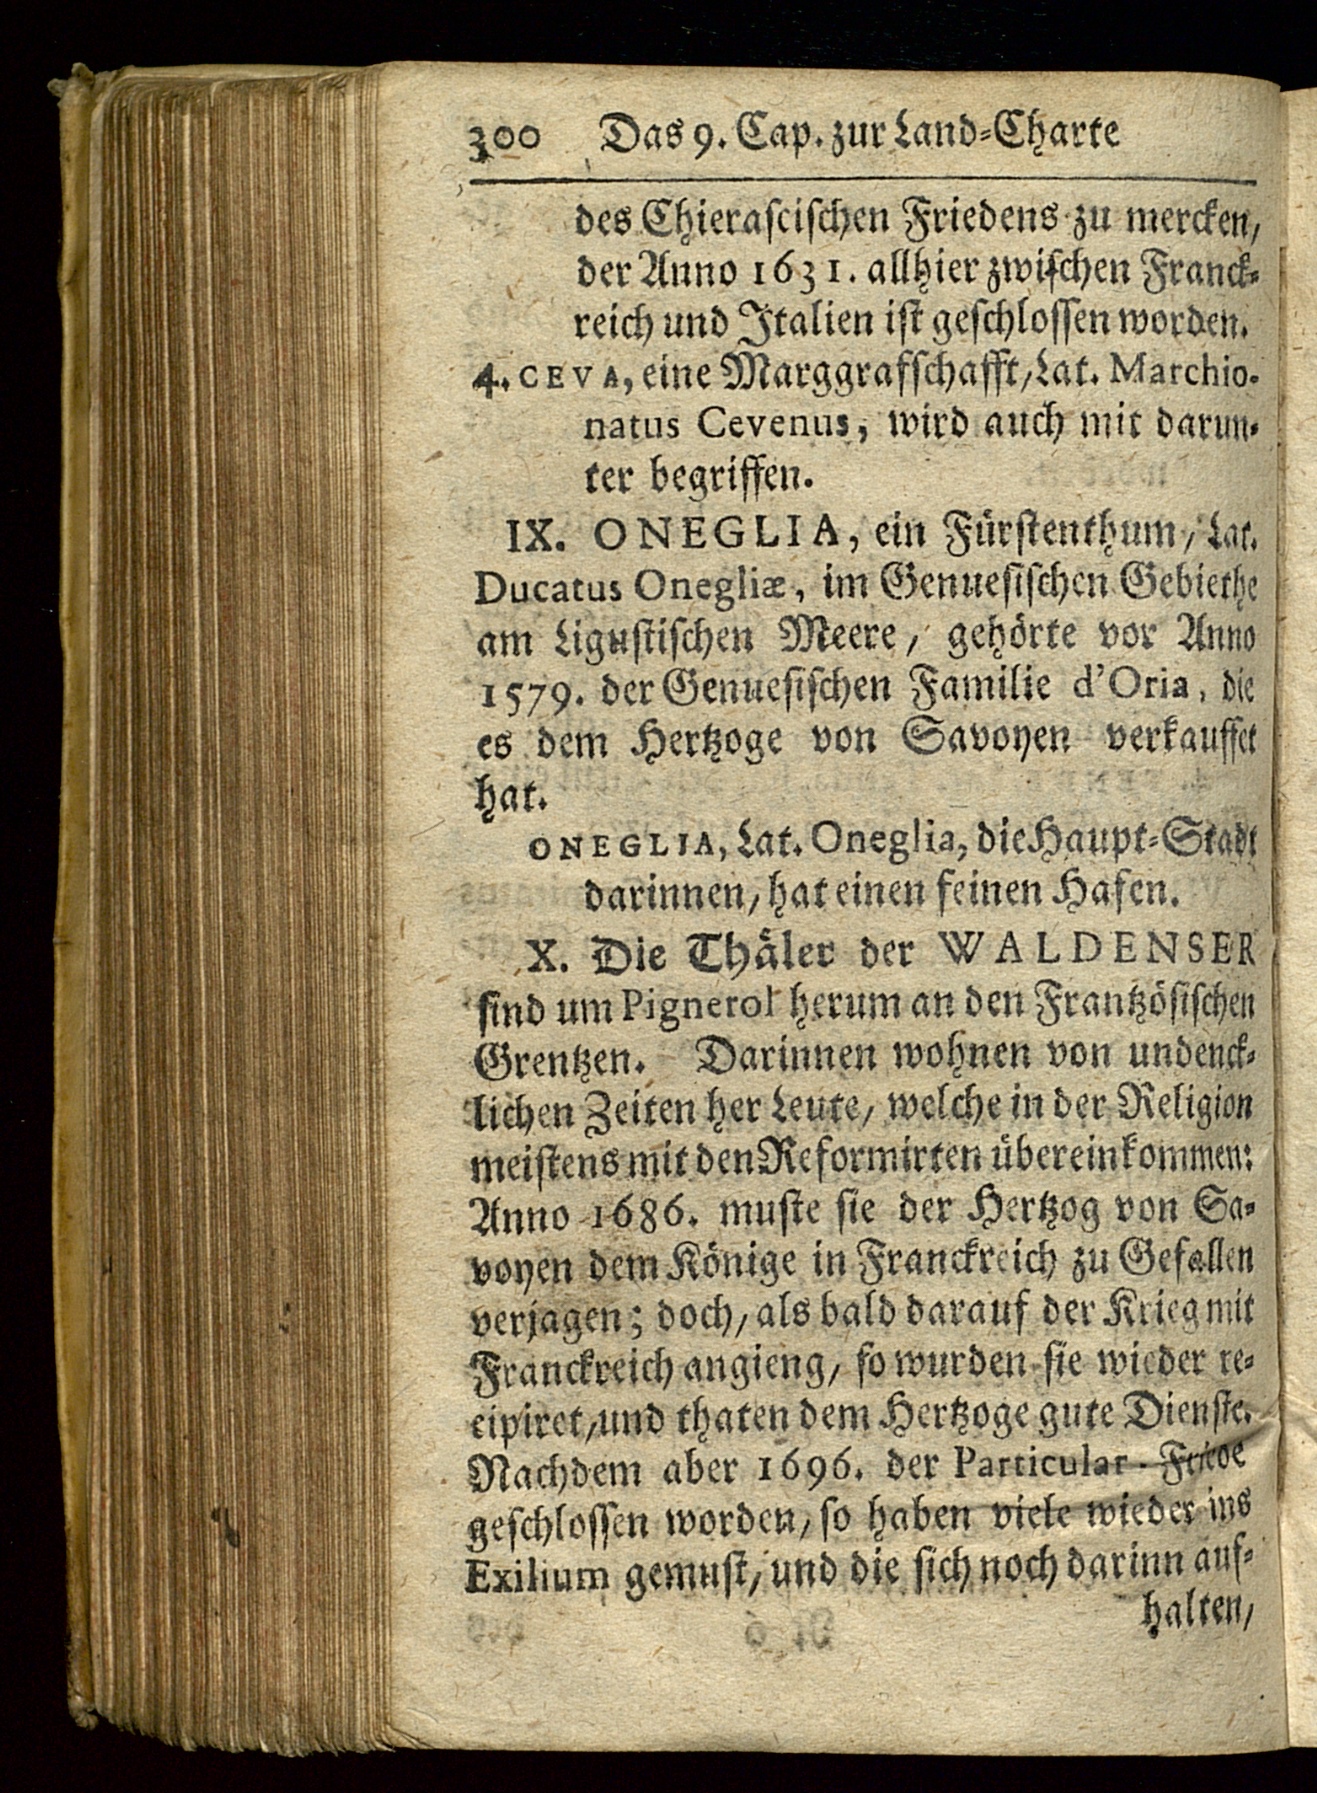 300 Das 9. Cap. zur Land-Charte
des Chierascischen Friedens zu mercken,
der Anno 1631. allhier zwischen Franck-
reich und Italien ist geschlossen worden.
4. CEVA, eine Marggrafschafft, Lat. Marchio-
natus Cevenus, wird auch mit darun-
ter begriffen.
IX. ONEGLIA, ein Fürstenthum, Lat.
Ducatus Onegliæ, im Genuesischen Gebiethe
am Ligustischen Meere, gehörte vor Anno
1579. der Genuesischen Familie d'Oria, die
es dem Hertzoge von Savoyen verkauffet
hat.
ONEGLIA, Lat. Oneglia, die Haupt-Stadt
darinnen, hat einen feinen Hafen.
X. Die Thäler der WALDENSER
sind um Pignerol herum an den Frantzösischen
Grentzen. Darinnen wohnen von undenck-
lichen Zeiten her Leute, welche in der Religion
meistens mit den Reformirten übereinkommen:
Anno 1686. muste sie der Hertzog von Sa-
voyen dem Könige in Franckreich zu Gefallen
verjagen; doch, als bald darauf der Krieg mit
Franckreich angieng, so wurden sie wieder re-
cipiret, und thaten dem Hertzoge gute Dienste.
Nachdem aber 1696. der Particular-Friede
geschlossen worden, so haben viele wieder ins
Exilium gemust, und die sich noch darinn auf-
halten,